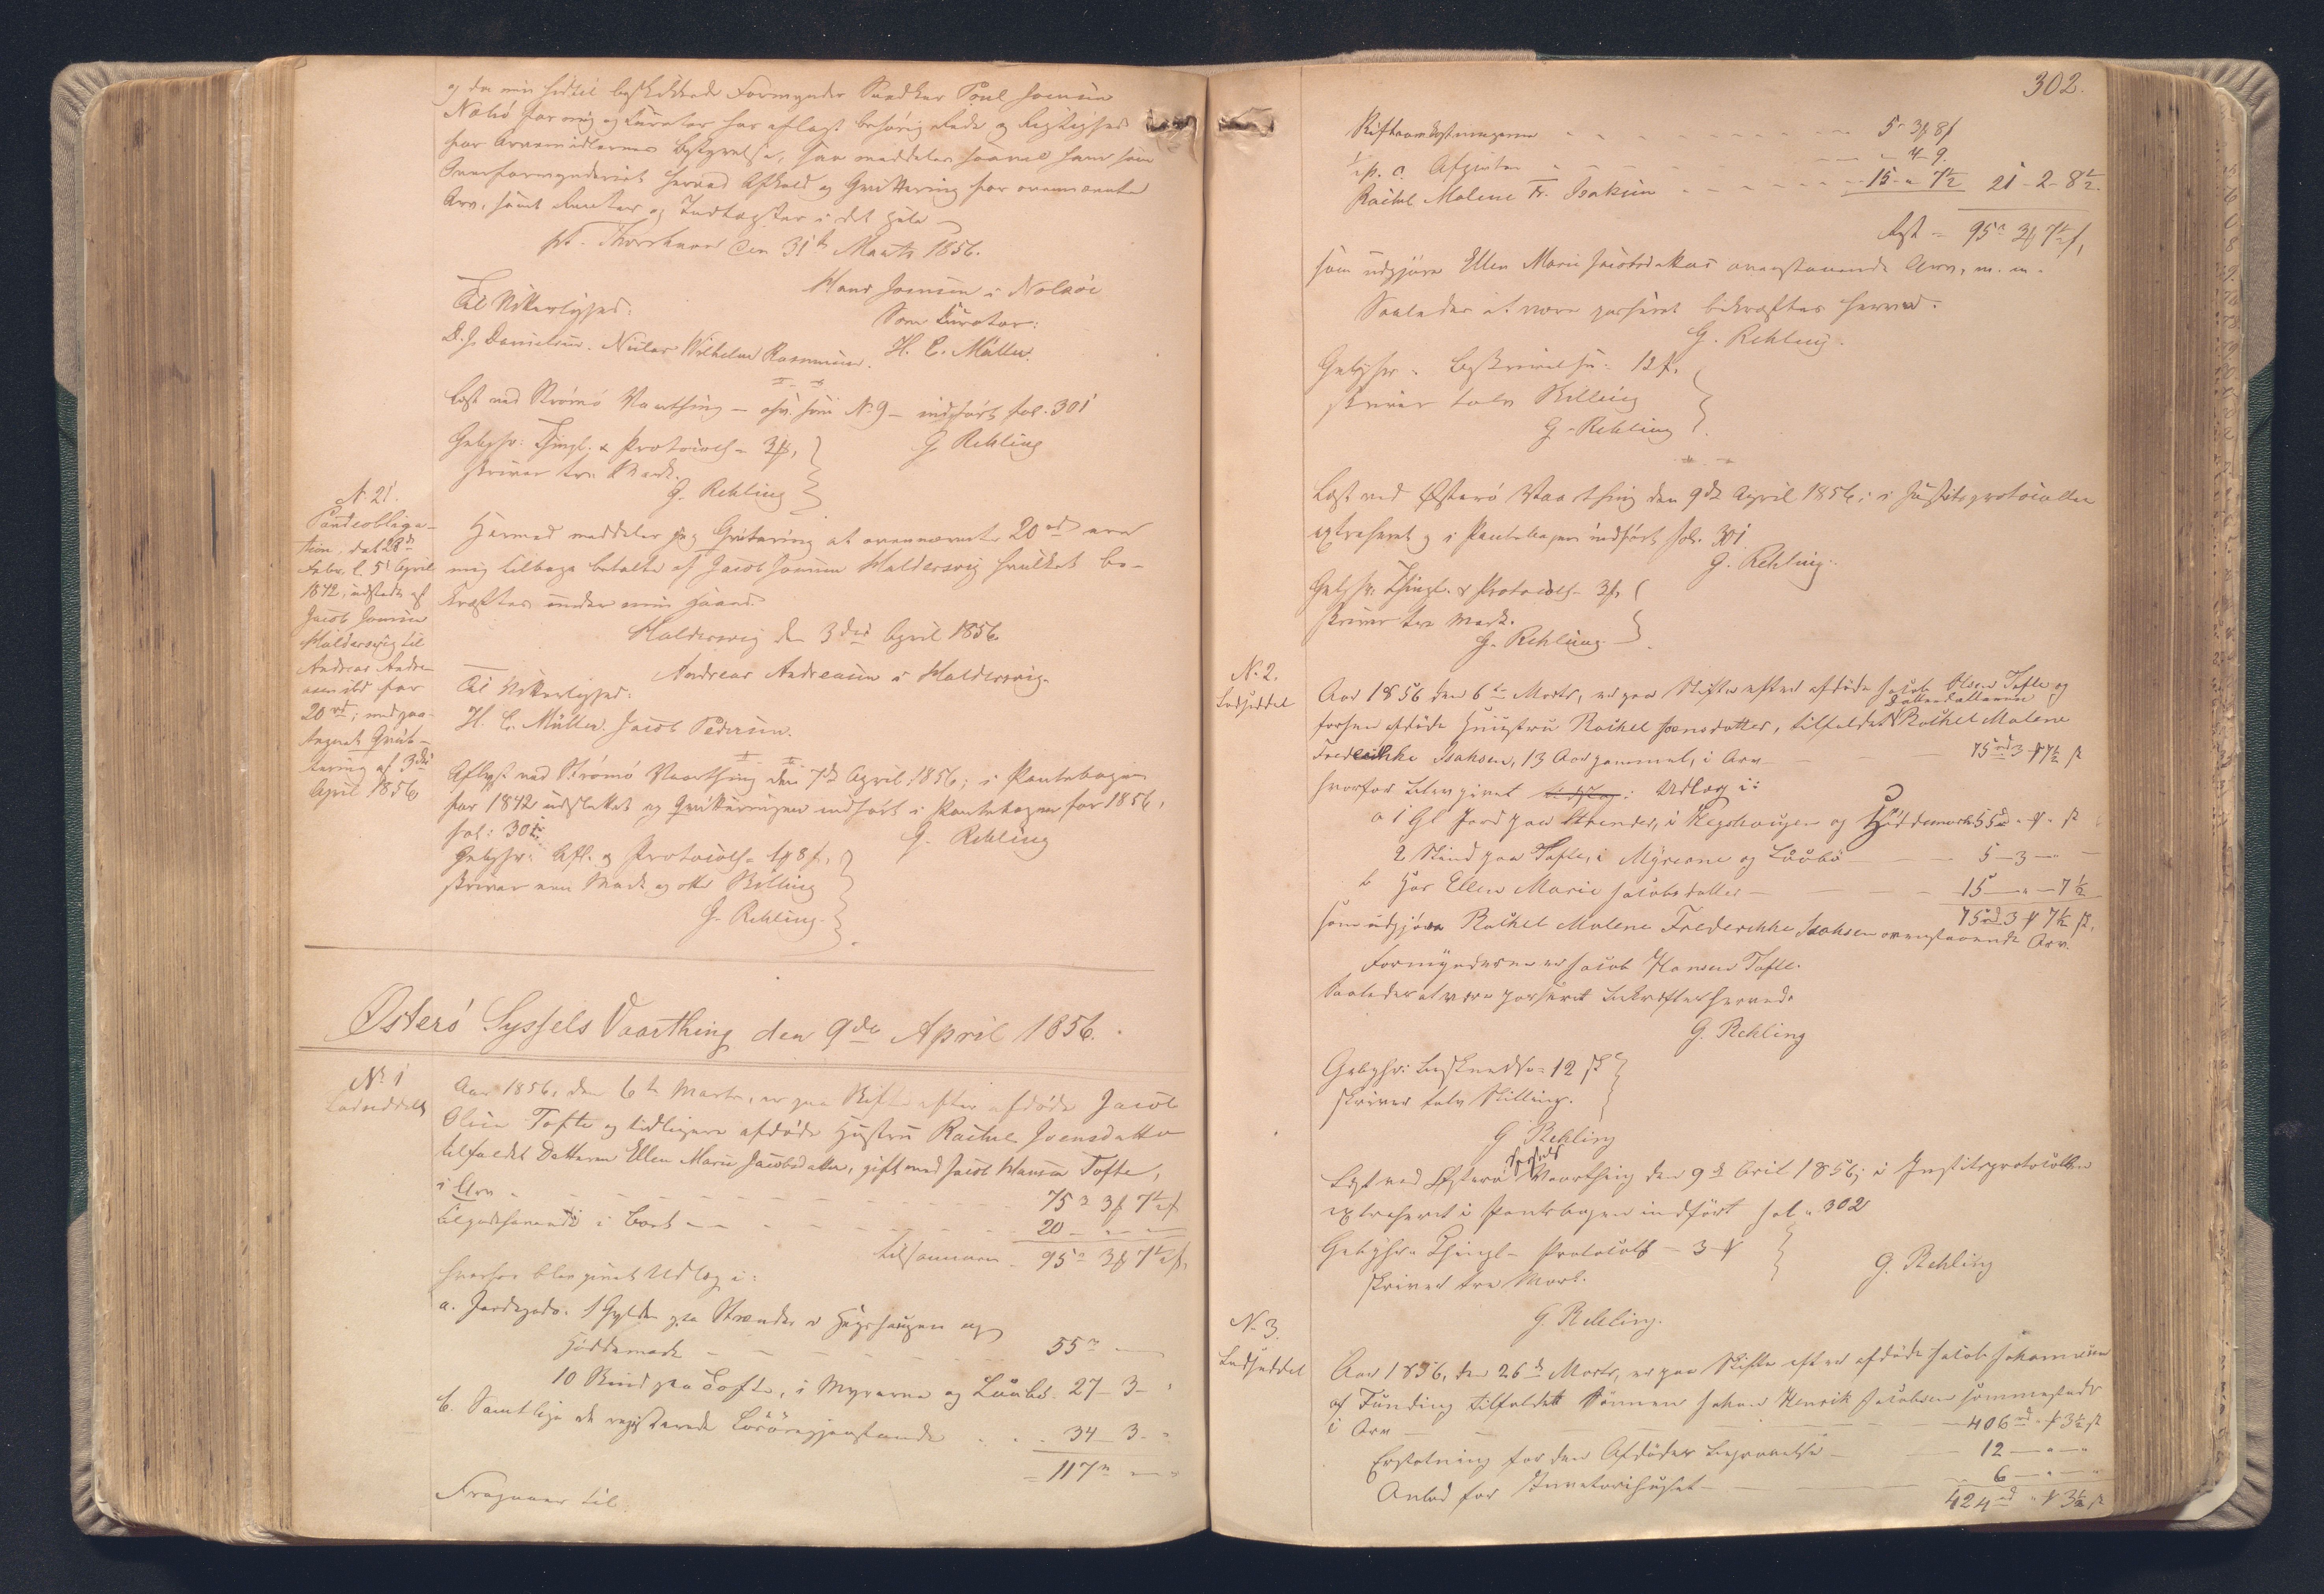 og da min hidtil beskikkede Formynder Snedker Poul Joensen
Nolsö for mig og Curator har aflagt behörig Rede og Rigtighed
for Arvemidlernes Bestyrelse, saa meddeles saavel ham som
Overformynderiet herved Afkald og Qvittering for ovennævnte
Arv, samt Renter og Indtægter i det Hele
pt. Thorshavn den 31te Marts 1856.
Hans Joensen i Nolsöe
Til Vitterlighed:
Som Curator:
D. J. Danielsen. Niclas Wilhelm Rasmussen. H. C. Müller.
Læst ved Strömö Vaarthing – som No 9 – indfört fol. 301
G. Rehling
Gebyhr: Thingl. & Protocoll = 3 ₻,
skriver tre Mark.
G. Rehling
N. 21.
Panteobliga-
tion, dat 28de
Febr. l. 5t April
1842, udstedt af
Jacob Joensen
Haldersvig til
Andreas Andre-
asen ibd for
20 rd; med paa-
tegnet Qvit-
tering af 3die
April 1856
Hermed meddeler jeg Qvitering at ovennævnte 20 rd ere
mig tilbage betalte af Jacob Joensen Haldersvig hvilket be-
kræftes under min Haand.
Haldersvig den 3die April 1856
Andreas Andreasen i Haldersvig.
Til Vitterlighed:
H. C. Müller. Jacob Pedersen.
Aflyst ved Strömö Vaarthing den 7de April 1856; i Pantebogen
for 1842 udslettet og Qvitteringen indfört i Pantebogen for 1856,
fol: 301.
G. Rehling
Gebyhr: Afl. og Protocoll = 1 ₻ 8 ſ,
skriver een Mark og otte Skilling
G. Rehling.
Österö Syssels Vaarthing den 9de April 1856.
No 1
Lodseddel
Aar 1856, den 6te Marts, er paa Skifte efter afdöde Jacob
Olsen Tofte og tidligere afdöde Hustru Rachel Joensdatter
tilfaldet Datteren Ellen Marie Jacobsdatter, gift med Jacob Hansen Tofte,
i Arv - - - 75 rd 3 ₻ 7½ ſ
tilgodehavende i Boet - - - 20 - " - "
tilsammen - 95 rd 3 ₻ 7½ ſ,
hvorfor blev givet Udlæg i:
a. Jordegods. 1 Gylden paa Strender i Hegshaugen og
Höddemark - - - 55 rd
10 Skind paa Tofte, i Myrerne og Lööbö. 27 - 3 - "
b. Samtlige de registrerede Lösöregjenstande . . . 34 - 3 - "
= 117 rd - "
Fragaaer til
302.
Skifteomkostningerne - - - 5 rd 3 ₻ 8 ſ
½ p. C. Afgivten - - - " - 4 - 9.
Rachel Malene Fr. Isaksen - - - 15 - " 7½ 21 - 2 - 8½.
Rest = 95 rd 3 ₻ 7½ ſ,
som udgjöre Ellen Marie Jacobsdatters ovenstaaende Arv, m. m.
Saaledes at være passeret bekræftes herved.
G. Rehling.
Gebyhr: Beskrivelse: 12 ſ.
skriver tolv Skilling
G. Rehling
Læst ved Österö Vaarthing den 9de April 1856; i Justitsprotocollen
extraheret og i Pantebogen indfört fol. 301
G. Rehling.
Gebyhr: Thingl. & Protocoll = 3 ₻,
skriver tre Mark.
G. Rehling.
N. 2.
Lodseddel
Aar 1856 den 6te Marts, er paa Skifte efter afdöde Jacob Olsen Tofte og
forhen afdöde Hustru Rachel Joensdatter, tilfaldet Datterdatteren Rachel Malene
Frederikke Isaksen, 13 Aar gammel, i Arv - - - 75 rd 3 ₻ 7½ ſ
hvorfor blev givet Udlæg i:
a 1 Gl Jord paa Strender, i Hegshaugen og Höddemark 55 rd " ₻ " ſ
2 Skind paa Tofte, i Myrerne og Lööbö - - - 5 - 3 - "
b hos Ellen Marie Jacobsdatter - - - 15 - " - 7½
75 rd 3 ₻ 7½ ſ,
som udgjöre Rachel Malene Frederikke Isaksen ovenstaaende Arv.
Formynderen er Jacob Hansen Tofte.
Saaledes at være passeret bekræftes herved.
G. Rehling
Gebyhr: Beskrivelse = 12 ſ
skriver tolv Skilling.
G Rehling
Læst ved Österö Syssels Vaarthing den 9de Aril 1856; i Justitsprotocollen
extraheret i Pantebogen indfört fol. 302
Gebyhr: Thingl- Protocoll - 3 ₻
skriver tre Mark.
G. Rehling
G. Rehling.
N. 3.
Lodseddel
Aar 1856, den 26de Marts, er paa Skifte efter afdöde Jacob Johannesen
af Funding tilfaldet Sönnen Johan Henrik Jacobsen sammesteds
i Arv - - - 406 rd " ₻ 3½ ſ
Erstatning for den Afdödes Begravelse - 12 - " - "
Anlod for - - - 6 - " - "
424 rd " ₻ 3½ ſ